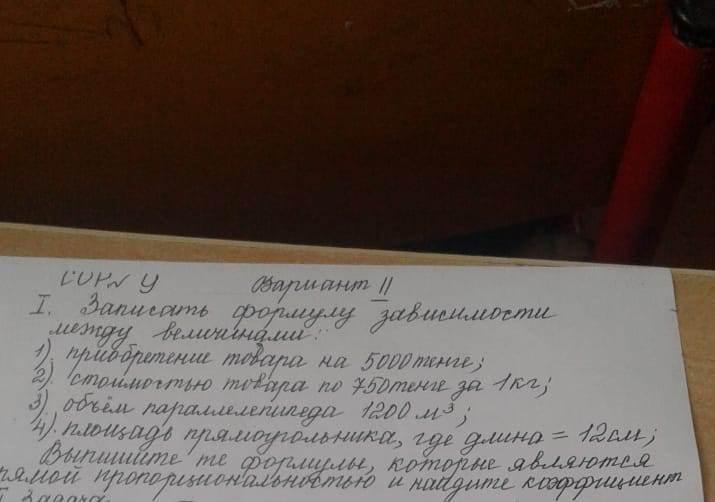 СОР № 4 Вариант II
I. Записать формулу зависимости
между величинами:
1). приобретение товара на 5000 тенге;
2). стоимостью товара по 750 тенге за 1 кг;
3) объём параллелепипеда 1200 м³;
4). площадь прямоугольника, где длина = 12 см;
Выпишите те формулы, которые являются
прямой пропорциональностью и найдите коэффициент
Задача